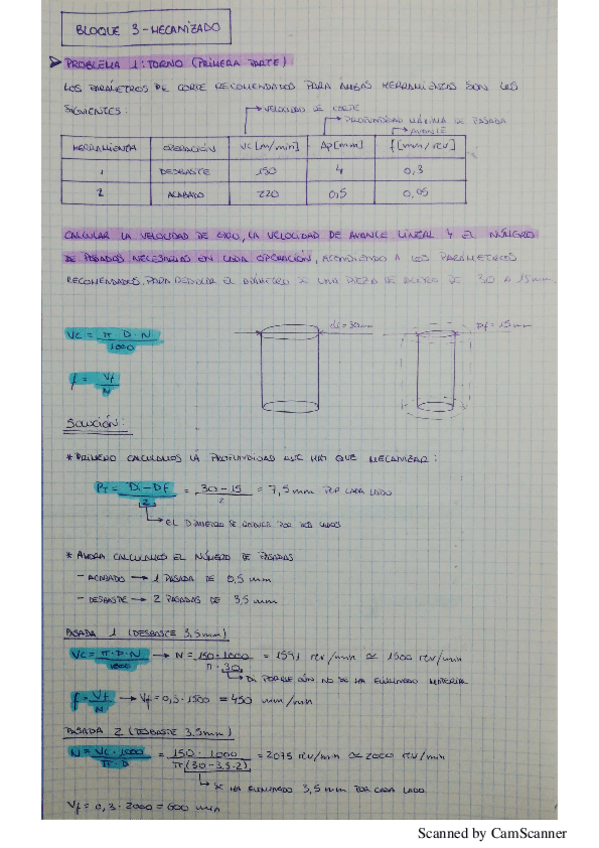 BLOQUE 3 - MECANIZADO
PROBLEMA 1: TORNO (PRIMERA PARTE)
LOS PARÁMETROS DE CORTE RECOMENDADOS PARA AMBAS HERRAMIENTAS SON LOS
SIGUIENTES:
VELOCIDAD DE CORTE
PROFUNDIDAD MÁXIMA DE PASADA
AVANCE
HERRAMIENTA OPERACIÓN Vc [m/min] Ap [mm] f [mm/rev]
1 DESBASTE 150 4 0,3
2 ACABADO 220 0,5 0,05
CALCULAR LA VELOCIDAD DE GIRO, LA VELOCIDAD DE AVANCE LINEAL Y EL NÚMERO
DE PASADAS NECESARIAS EN CADA OPERACIÓN, ATENDIENDO A LOS PARÁMETROS
RECOMENDADOS, PARA REDUCIR EL DIÁMETRO DE UNA PIEZA DE ACERO DE 30 A 15mm.
Vc = π · D · N / 1000
di = 30mm
Df = 15mm
f = Vf / N
SOLUCIÓN:
* PRIMERO CALCULAMOS LA PROFUNDIDAD QUE HAY QUE MECANIZAR:
PT = Di - Df / 2 = 30 - 15 / 2 = 7,5 mm POR CADA LADO
EL DIÁMETRO SE REDUCE POR DOS LADOS
* AHORA CALCULAMOS EL NÚMERO DE PASADAS
- ACABADO → 1 PASADA DE 0,5 mm
- DESBASTE → 2 PASADAS DE 3,5 mm
PASADA 1 (DESBASTE 3,5mm)
Vc = π · D · N / 1000 → N = 150 · 1000 / π · 30 = 1591 rev/min ≃ 1500 rev/min
Di PORQUE AÚN NO SE HA ELIMINADO MATERIAL
f = Vf / N → Vf = 0,3 · 1500 = 450 mm/min
PASADA 2 (DESBASTE 3,5mm)
N = Vc · 1000 / π · D = 150 · 1000 / π (30 - 3,5 · 2) = 2075 rev/min ≃ 2000 rev/min
SE HA ELIMINADO 3,5 mm POR CADA LADO
Vf = 0,3 · 2000 = 600 mm
Scanned by CamScanner